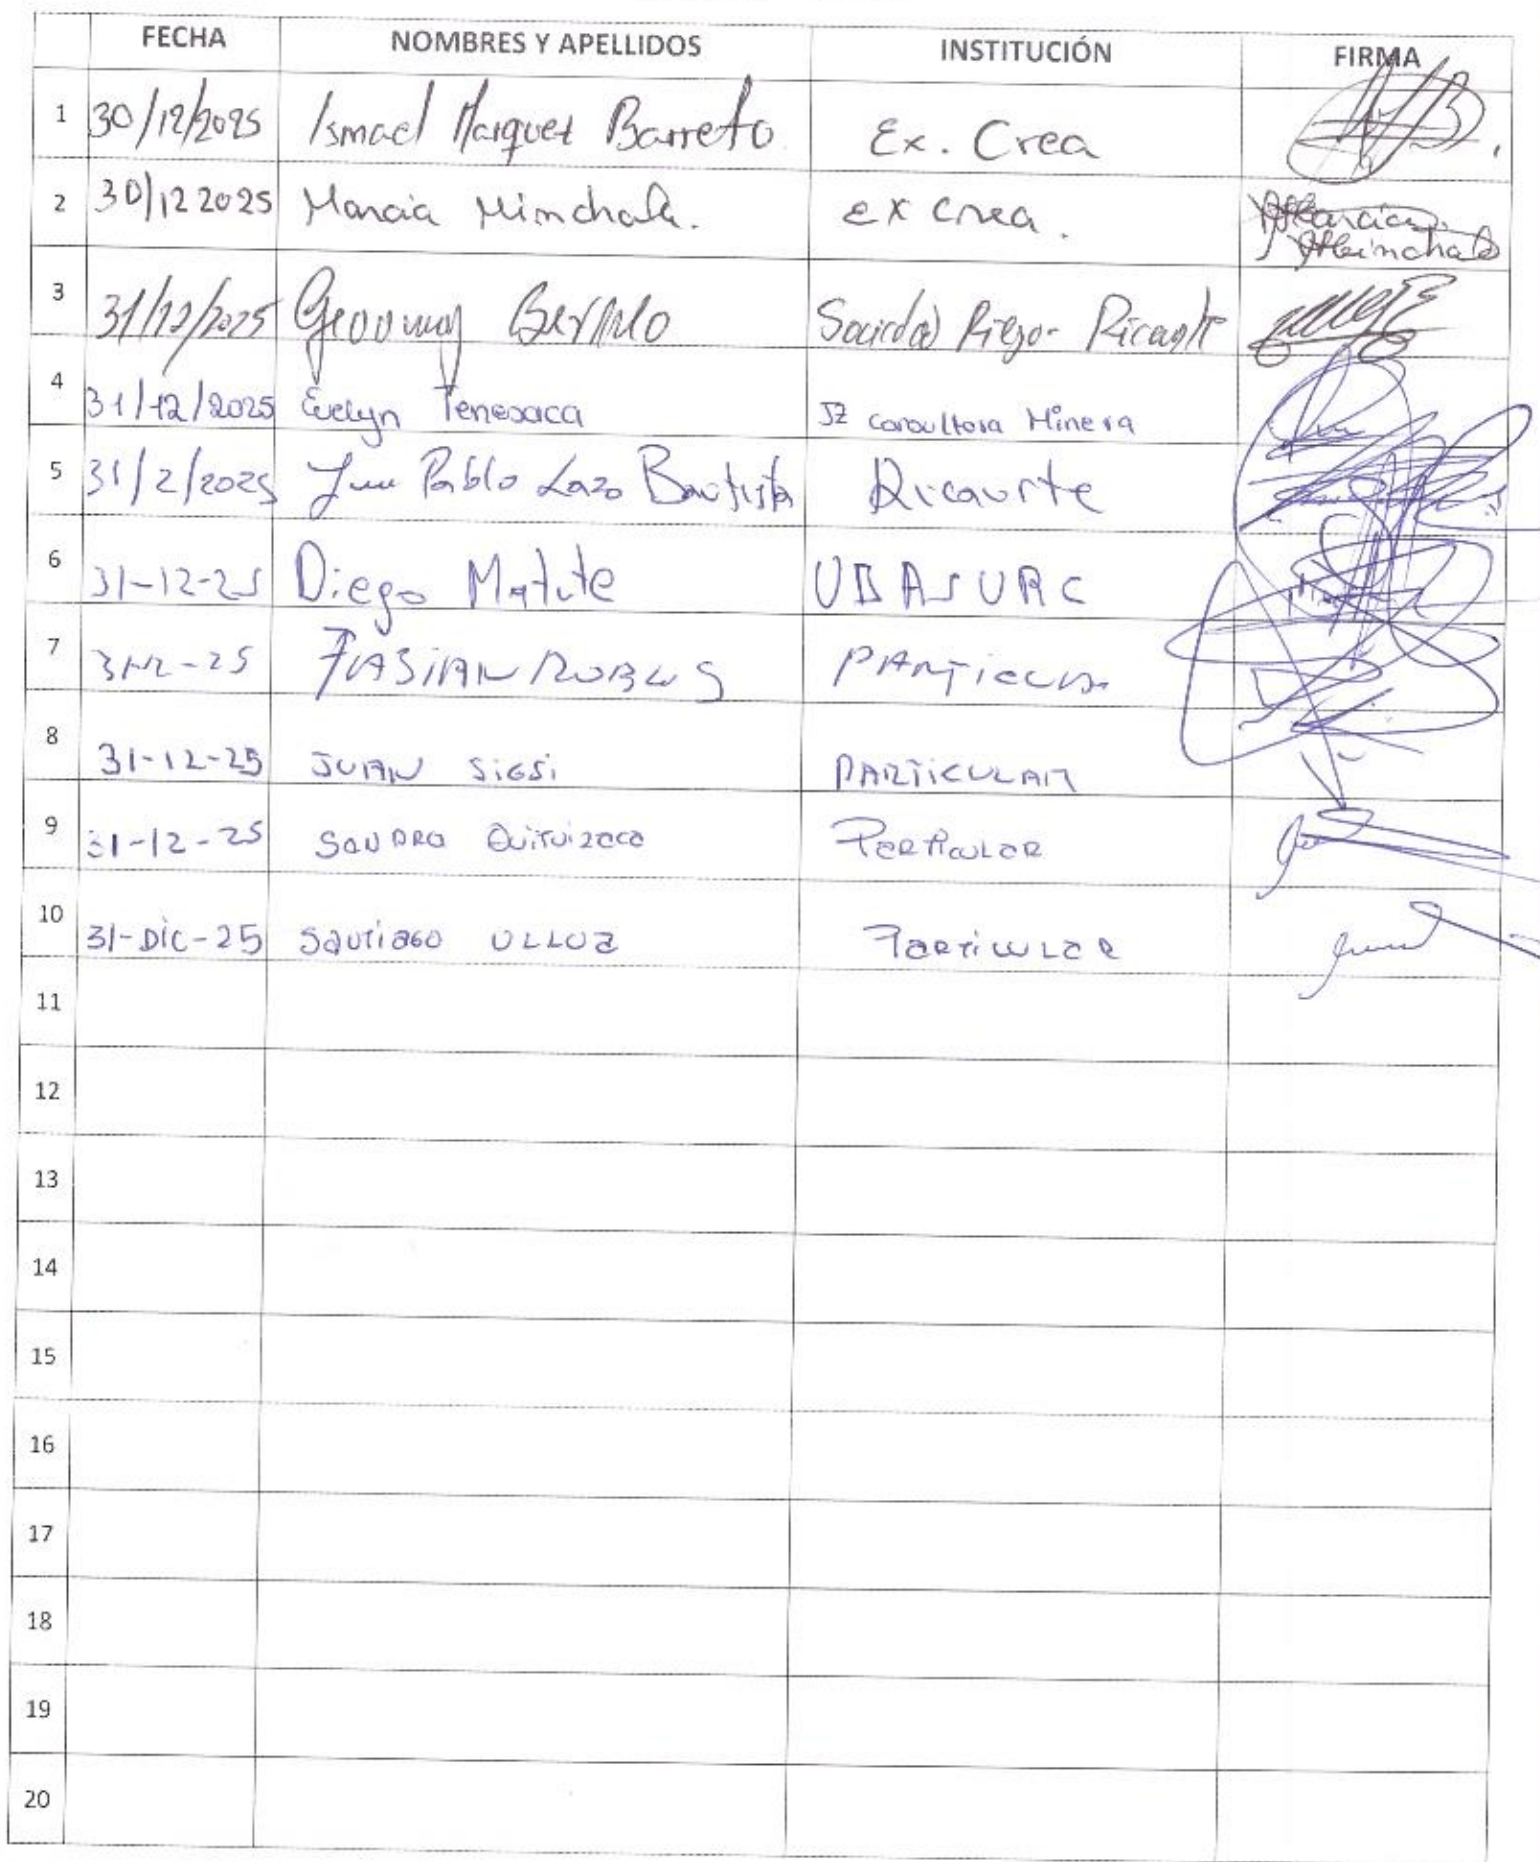 FECHA NOMBRES Y APELLIDOS INSTITUCIÓN FIRMA
1 30/12/2025 Ismael Marquez Barreto Ex. Crea
2 30/12 2025 Marcia Minchala. ex Crea. Marcia Minchala
3 31/12/2025 Geovanny Riego - Ricaurte
4 31/12/2025 Evelyn Tenesaca JZ consultora Minera
5 31/2/2025 Juan Pablo Lazo Bautista Ricaurte
6 31-12-25 Diego Matute
7 FABIAN ROBLES PARTICULAR
8 31-12-25 JUAN SIGSI PARTICULAR
9 31-12-25 SANDRO Quituizaca Particular
10 31-DIC-25 Santiago ULLOa Particular
11
12
13
14
15
16
17
18
19
20